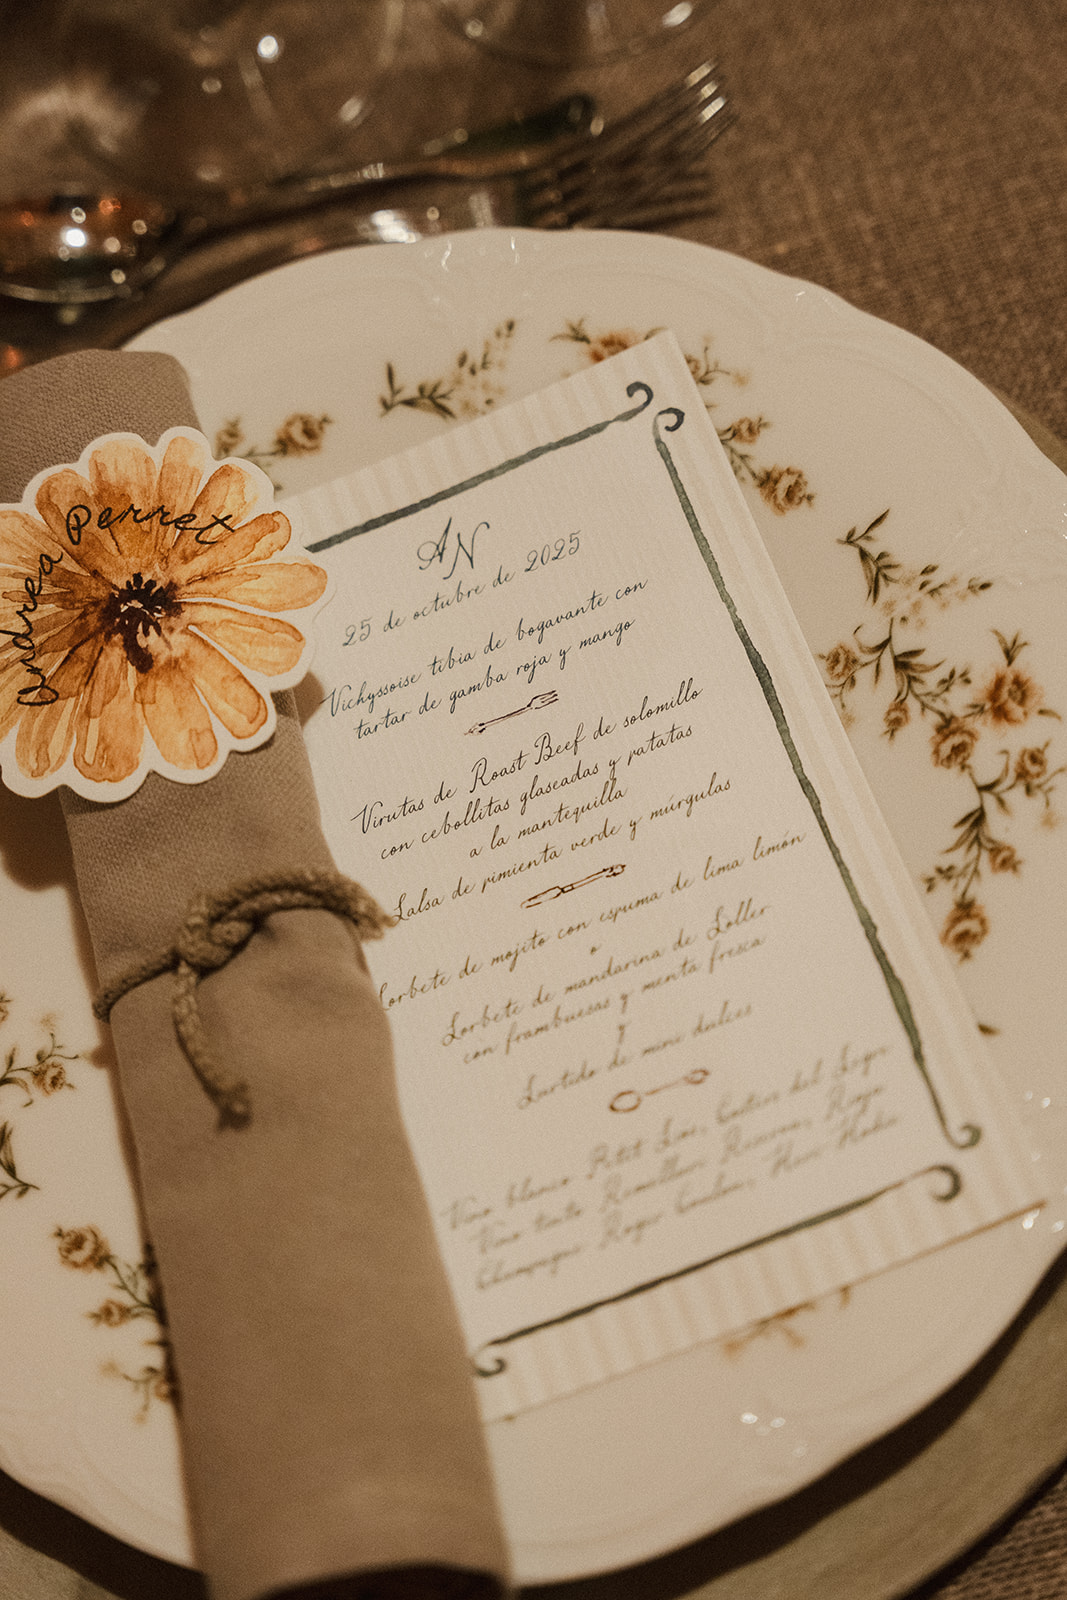 Andrea Perret
AN
25 de octubre de 2025
Vichyssoise tibia de bogavante con
tartar de gamba roja y mango
Virutas de Roast Beef de solomillo
con cebollitas glaseadas y patatas
a la mantequilla
Salsa de pimienta verde y múrgulas
Sorbete de mojito con espuma de lima limón
o
Sorbete de mandarina de Sóller
con frambuesas y menta fresca
y
Surtido de mini dulces
Vino blanco Petit
Vino tinto Remelluri Reserva, Rioja
Champagne Roger